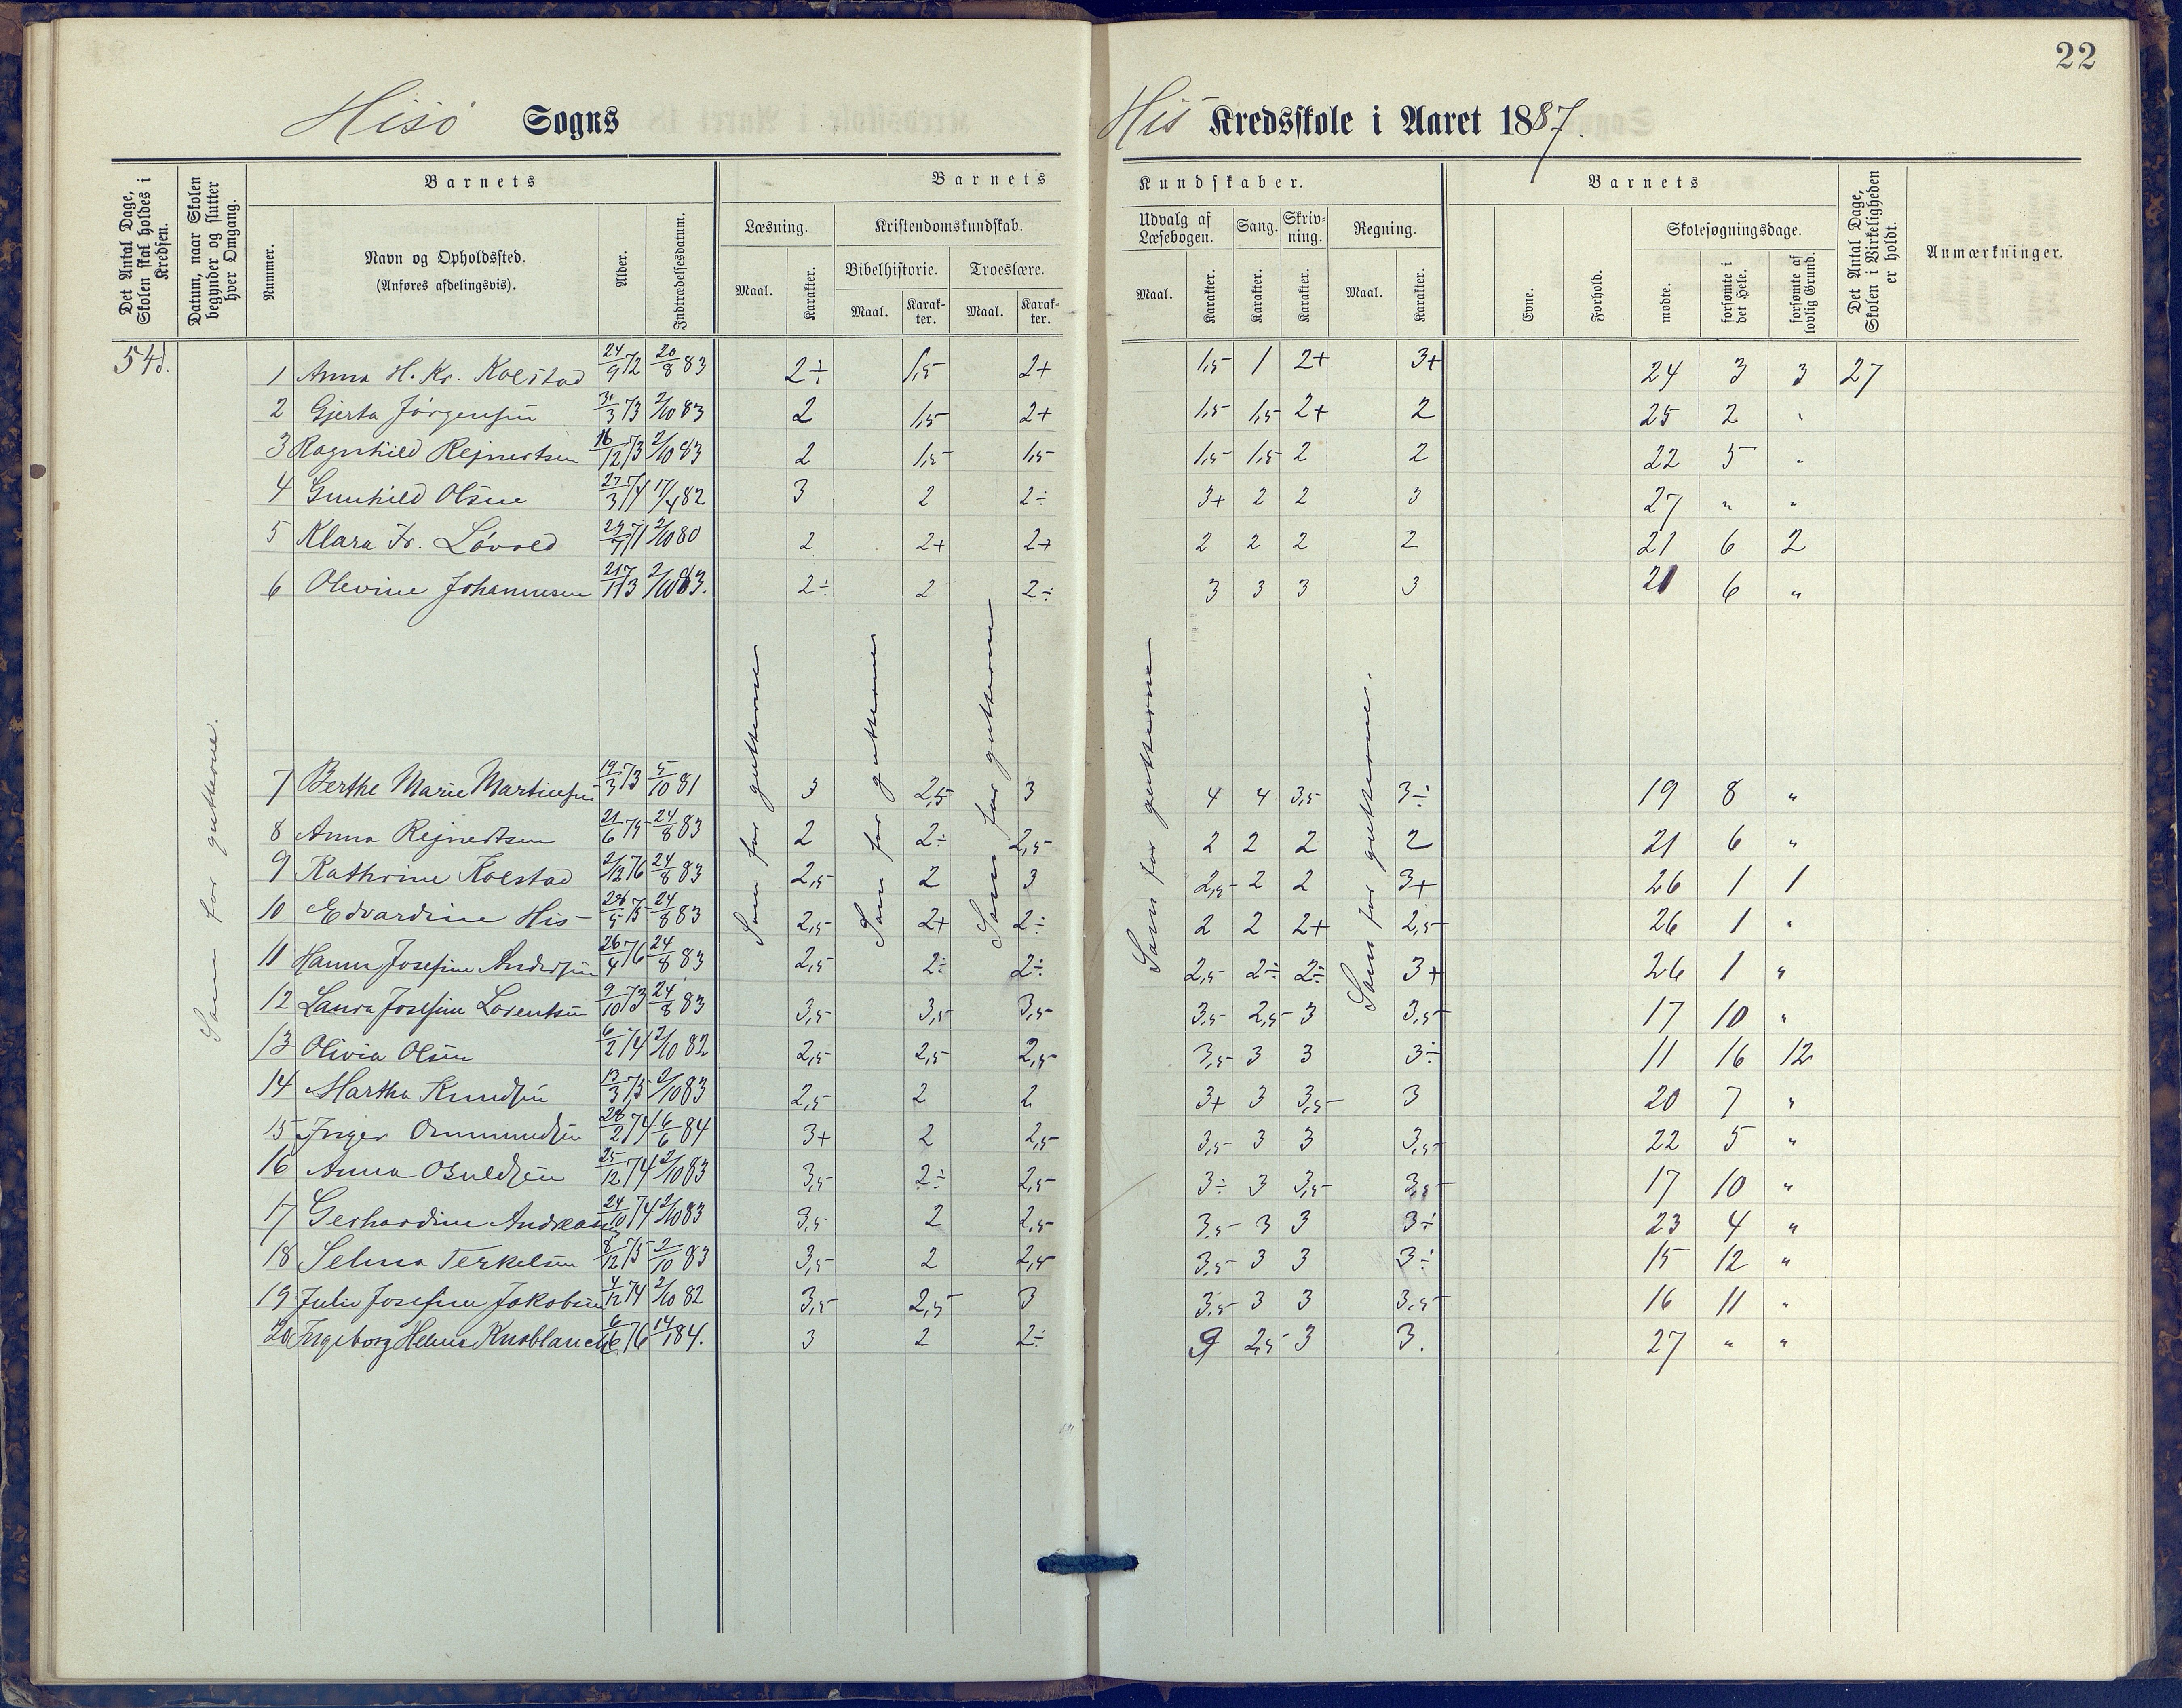 22
Hisö Sogns His Kredsskole i Aaret 1887.
Det Antal Dage, Skolen skal holdes i Kredsen.
Datum, naar Skolen begynder og slutter hver Omgang.
Barnets
Nummer.
Navn og Opholdssted.
(Anføres afdelingsvis).
Alder.
Indtrædelsesdatum.
Barnets Kundskaber.
Læsning.
Maal.
Karakter.
Kristendomskundskab.
Bibelhistorie.
Maal.
Karakter.
Troeslære.
Maal.
Karakter.
Udvalg af Læsebogen.
Maal.
Karakter.
Sang.
Karakter.
Skrivning.
Karakter.
Regning.
Maal.
Karakter.
Barnets
Evne.
Forhold.
Skolesøgningsdage.
mødte.
forsømte i det Hele.
forsømte af lovlig Grund.
Det Antal Dage, Skolen i Virkeligheden er holdt.
Anmærkninger.
54d. 1 Anna H. Kr. Kolstad 24/9 72 20/8 83 2÷ 1,5 2+ 1,5 1 2+ 3+ 24 3 3 27
2 Gjerta Jörgensen 31/3 73 2/10 83 2 1,5 2+ 1,5 1,5 2+ 2 25 2 "
3 Ragnhild Rejnertsen 16/12 73 2/10 83 2 1,5 1,5 1,5 1,5 2 2 22 5 "
4 Gunhild Olsen 27/3 71 17/4 82 3 2 2÷ 3+ 2 2 3 27 " "
5 Klara Fr. Lövold 71 2/10 80 2 2+ 2+ 2 2 2 2 21 6 2
6 Olevine Johannesen 21/11 73 2/10 83. 2÷ 2 2÷ 3 3 3 3 21 6 "
Som for gutterne.
Som for gutterne
Som for gutterne
Som for gutterne
Som for gutterne
Som for gutterne.
7 Berthe Marie Martinsen 19/3 73 5/10 81 3 2,5 3 4 4 3,5 3÷ 19 8 "
8 Anna Rejnertsen 21/6 75 24/8 83 2 2÷ 2,5 2 2 2 2 21 6 "
9 Kathrine Kolstad 2/12 76 24/8 83 2,5 2 3 2,5 2 2 3+ 26 1 1
10 Edvardine His 75 24/8 83 2,5 2+ 2÷ 2 2 2+ 2,5 26 1 "
11 Hanna Josefine Andersen 26/4 76 24/8 83 2,5 2÷ 2÷ 2,5 2÷ 2÷ 3+ 26 1 "
12 Laura Josefine Lorentsen 9/10 73 24/8 83 3,5 3,5 3,5 3,5 2,5 3 3,5 17 10 "
13 Olivia Olsen 6/2 74 2/10 82 2,5 2,5 2,5 3,5 3 3 3÷ 11 16 12
14 Martha Knudsen 13/3 75 2/10 83 2,5 2 2 3+ 3 3,5 3 20 7 "
15 Inger Ommundsen 74 84 3+ 2 2,5 3,5 3 3 3,5 22 5 "
16 Anna Osuldsen 25/12 74 2/10 83 3,5 2÷ 2,5 3÷ 3 3,5 3,5 17 10 "
17 Gerhardine Andreasen 24/10 74 2/10 83 3,5 2 2,5 3,5 3 3 3÷ 23 4 "
18 Selma Terkelsen 8/12 75 2/10 83 3,5 2 2,5 3,5 3 3 3÷ 15 12 "
19 Julie Josefine Jakobsen 4/12 74 2/10 82 3,5 2,5 3 3,5 3 3 3,5 16 11 "
20 Ingeborg Helene Knoblauch 6/6 76 14/1 84. 3 2 2÷ 2,5 3 3. 27 " "